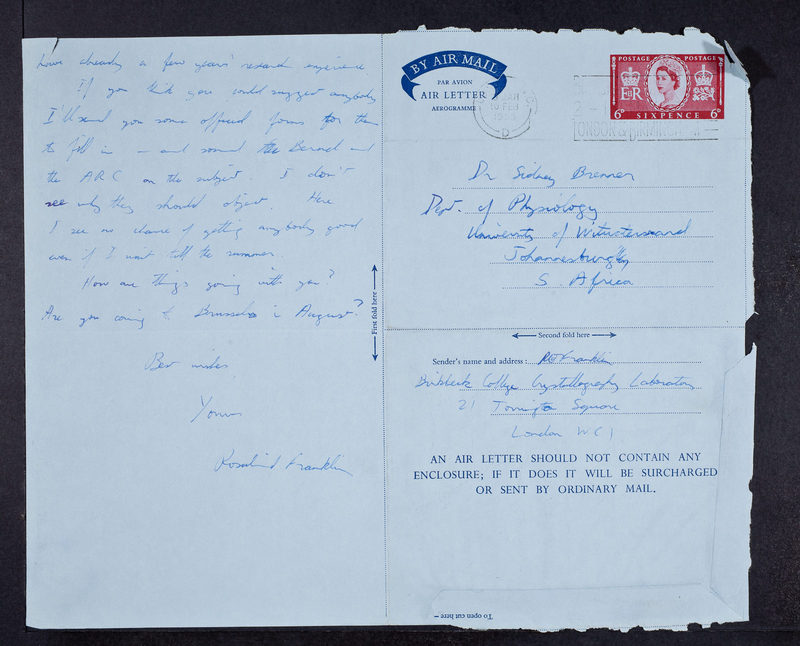 have already a few years' research experience
If you think you could suggest anybody
I'll send you some official forms for them
to fill in — and sound the Bernal and
the ARC on the subject. I don't
see why they should object. Here
I see no chance of getting anybody good
even if I wait till the summer.
How are things going with you?
Are you coming to Brussels in August?
Best wishes
Yours
Rosalind Franklin
BY AIR MAIL
PAR AVION
AIR LETTER
AEROGRAMME
POSTAGE POSTAGE
E R
6D SIXPENCE 6D
10 FEB
Dr Sidney Brenner
Dept. of Physiology
University of Witwatersrand
Johannesburg
S. Africa
First fold here
Second fold here
Sender's name and address: R E Franklin
Birkbeck College Crystallography Laboratory
21 Torrington Square
London WC1
AN AIR LETTER SHOULD NOT CONTAIN ANY
ENCLOSURE; IF IT DOES IT WILL BE SURCHARGED
OR SENT BY ORDINARY MAIL.
To open cut here